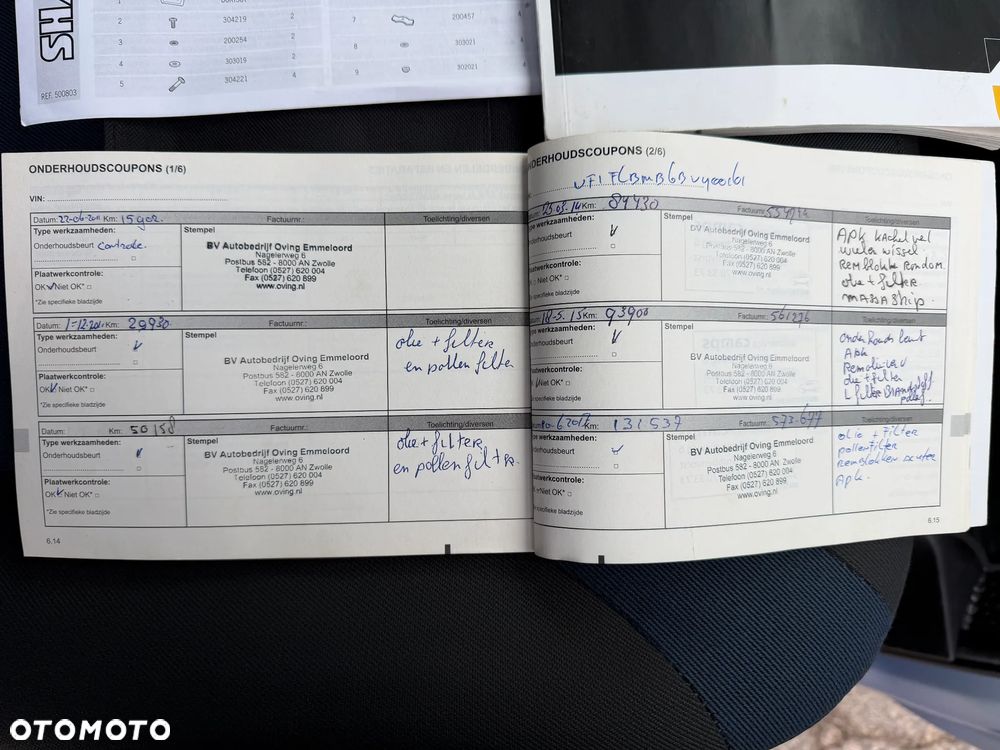 2 304219 2
3 200254 2
4 303019 2
5 304221 4
REF. 500803
7 200457
8 303021 4
9 302021 4
ONDERHOUDSCOUPONS (1/6)
VIN:
Datum: 22-06-2011 Km: 15902. Factuurnr.: Toelichting/diversen
Type werkzaamheden: Stempel
Onderhoudsbeurt Controle.
BV Autobedrijf Oving Emmeloord
Nagelerweg 6
Postbus 582 - 8000 AN Zwolle
Telefoon (0527) 620 004
Fax (0527) 620 899
www.oving.nl
Plaatwerkcontrole:
OK Niet OK*
*Zie specifieke bladzijde
Datum: Km: 29930 Factuurnr.: Toelichting/diversen
Type werkzaamheden: Stempel
Onderhoudsbeurt
BV Autobedrijf Oving Emmeloord
Nagelerweg 6
Postbus 582 - 8000 AN Zwolle
Telefoon (0527) 620 004
Fax (0527) 620 899
www.oving.nl
olie + filter
en pollen filter
Plaatwerkcontrole:
OK Niet OK*
*Zie specifieke bladzijde
Datum: Km: 50158 Factuurnr.: Toelichting/diversen
Type werkzaamheden: Stempel
Onderhoudsbeurt
BV Autobedrijf Oving Emmeloord
Nagelerweg 6
Postbus 582 - 8000 AN Zwolle
Telefoon (0527) 620 004
Fax (0527) 620 899
www.oving.nl
olie + filter
en pollenfilter.
Plaatwerkcontrole:
OK Niet OK*
*Zie specifieke bladzijde
6.14
ONDERHOUDSCOUPONS (2/6)
Km: 84430 Factuurnr.: Toelichting/diversen
Type werkzaamheden: Stempel
Onderhoudsbeurt
BV Autobedrijf Oving Emmeloord
Nagelerweg 6
Postbus 582 - 8000 AN Zwolle
Telefoon (0527) 620 004
Fax (0527) 620 899
www.oving.nl
APK
wielen wissel
Remblokke Rondom
olie + filter
Plaatwerkcontrole:
OK Niet OK*
*Zie specifieke bladzijde
18-5-15 Km: 93900 Factuurnr.: 561276 Toelichting/diversen
Type werkzaamheden: Stempel
Onderhoudsbeurt
BV Autobedrijf Oving Emmeloord
Nagelerweg 6
Postbus 582 - 8000 AN Zwolle
Telefoon (0527) 620 004
Fax (0527) 620 899
www.oving.nl
APK
Plaatwerkcontrole:
OK Niet OK*
*Zie specifieke bladzijde
Km: 131537 Factuurnr.: 573-677 Toelichting/diversen
Type werkzaamheden: Stempel
Onderhoudsbeurt
BV Autobedrijf Oving Emmeloord
Nagelerweg 6
Postbus 582 - 8000 AN Zwolle
Telefoon (0527) 620 004
Fax (0527) 620 899
www.oving.nl
olie + filter
pollenfilter
remblokken achter
Apk.
Plaatwerkcontrole:
OK Niet OK*
*Zie specifieke bladzijde
6.15
OTOMOTO